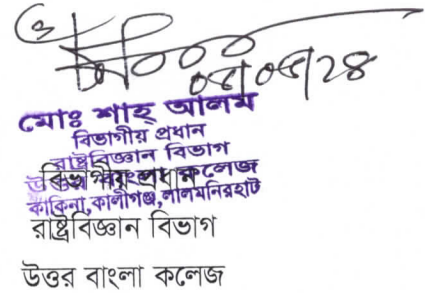 ০৫/০৫/২৪
মোঃ শাহ্ আলম
বিভাগীয় প্রধান
রাষ্ট্রবিজ্ঞান বিভাগ
উত্তর বাংলা কলেজ
কাকিনা,কালীগঞ্জ,লালমনিরহাট
বিভাগীয় প্রধান
রাষ্ট্রবিজ্ঞান বিভাগ
উত্তর বাংলা কলেজ